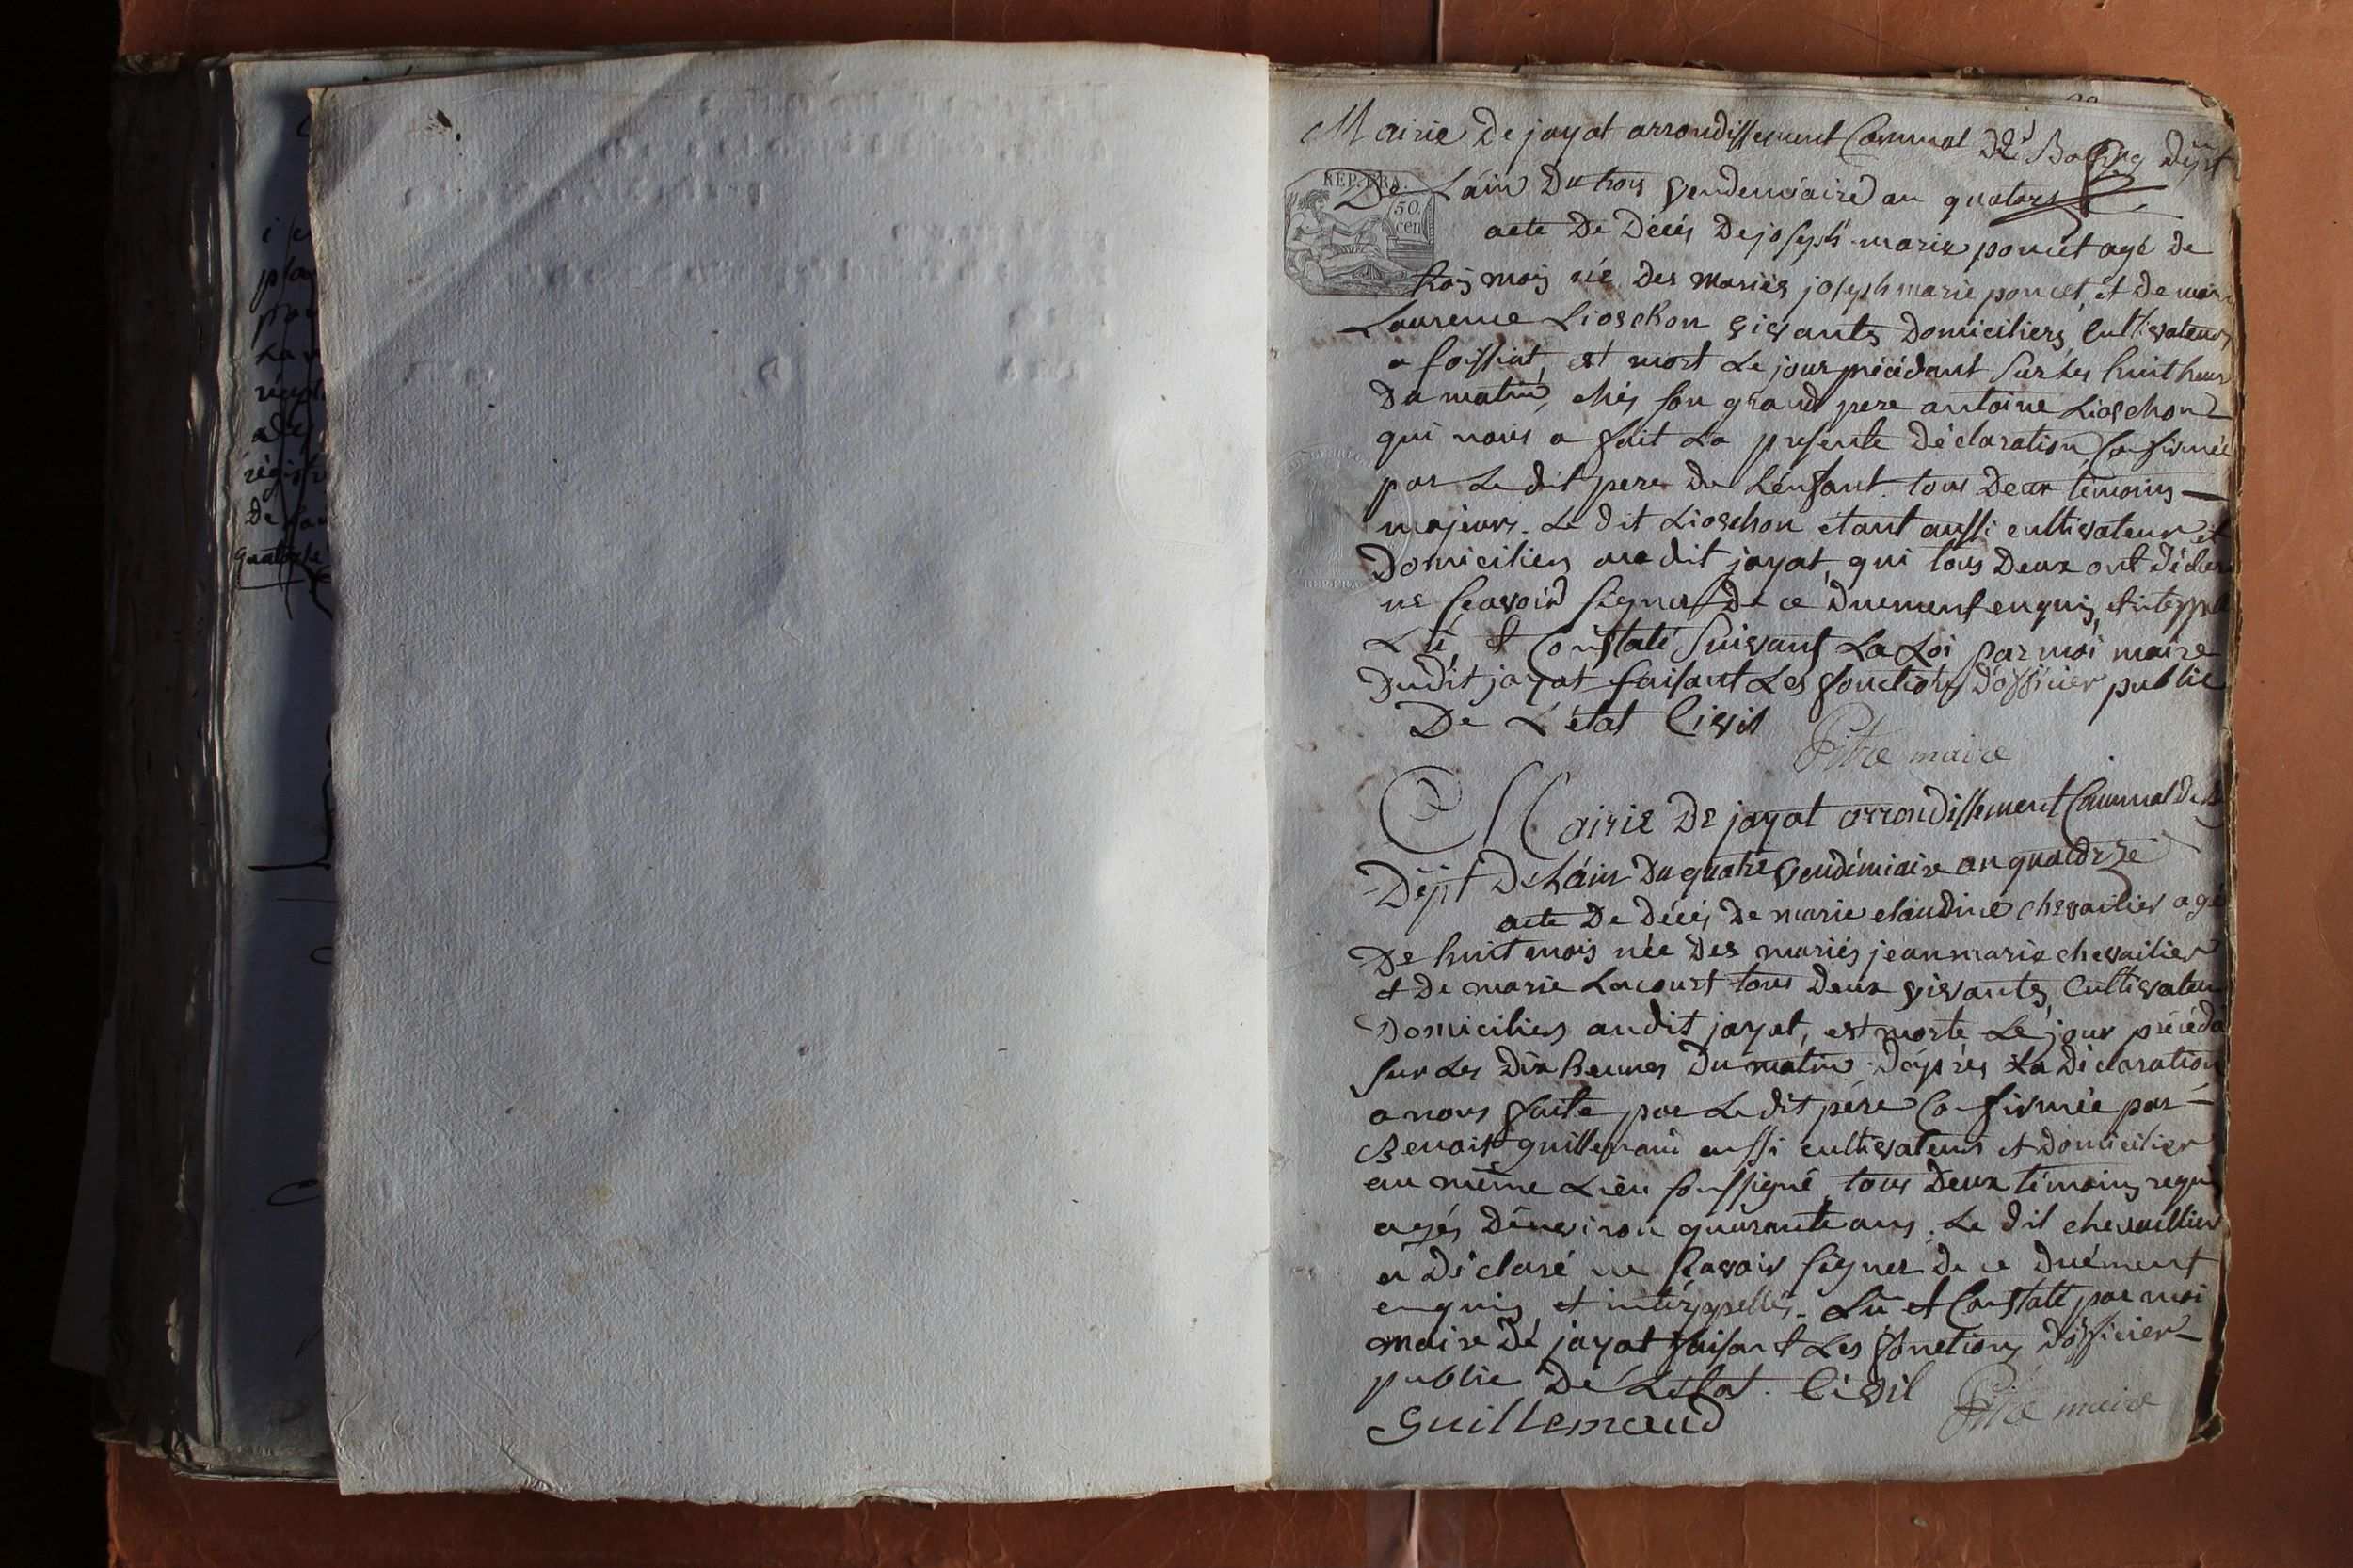 Mairie De jayat arrondissement Communal De Bourg Dépt
REP. FRA.
50.
cen
De Lain Du trois vendemiaire an quatorze
acte De Décés De joseph marie poncet agé de
trois mois né des mariés joseph marie poncet, et De marie
Laurence Lioschon vivants Domiciliers, Cultivateurs
a foissiat, est mort Le jour précédant sur les huit heures
Du matin, chés son grand pere antoine Lioschon
qui nous a fait La presente Déclaration Confirmée
par Le dit pere De Lénfant. tous Deux témoins
majeurs. Le dit Lioschon étant aussi cultivateur et
Domiciliers au dit jayat, qui tous Deux ont Déclaré
ne sçavoir signer De ce Duement enquis, et interppellé
Lu, et Constaté suivant La Loi par moi maire
Dudit jayat faisant Les fonctions D'officier public
De L'état Civil
Pitre maire
Mairie De jayat arrondissement Communal De B
Dépt De Láin Du quatre vendémiaire an quatorze
acte De Décés De marie claudine chevailier agé
De huit mois née Des mariés jean marie chevailier
et De marie Lacourt tous Deux vivants, Cultivateurs
Domiciliers audit jayat, est morte Le jour précéda
sur Les Dix heures Du matin. D'aprés La Déclaration
a nous faite par Le dit pére Confirmée par
Benoist guillemaud aussi cultivateurs et Domicilier
au même Lieu soussigné, tous Deux témoins requis
agés Dénviron quarante ans. Le dit chevaillier
a Déclaré ne sçavoir signer De ce Duément
enquis et intérppellés. Lu et Constaté par moi
maire Dé jayat faisant Les fonctions D'officier
public De L'état. Civil
Guillemaud
Pitre maire